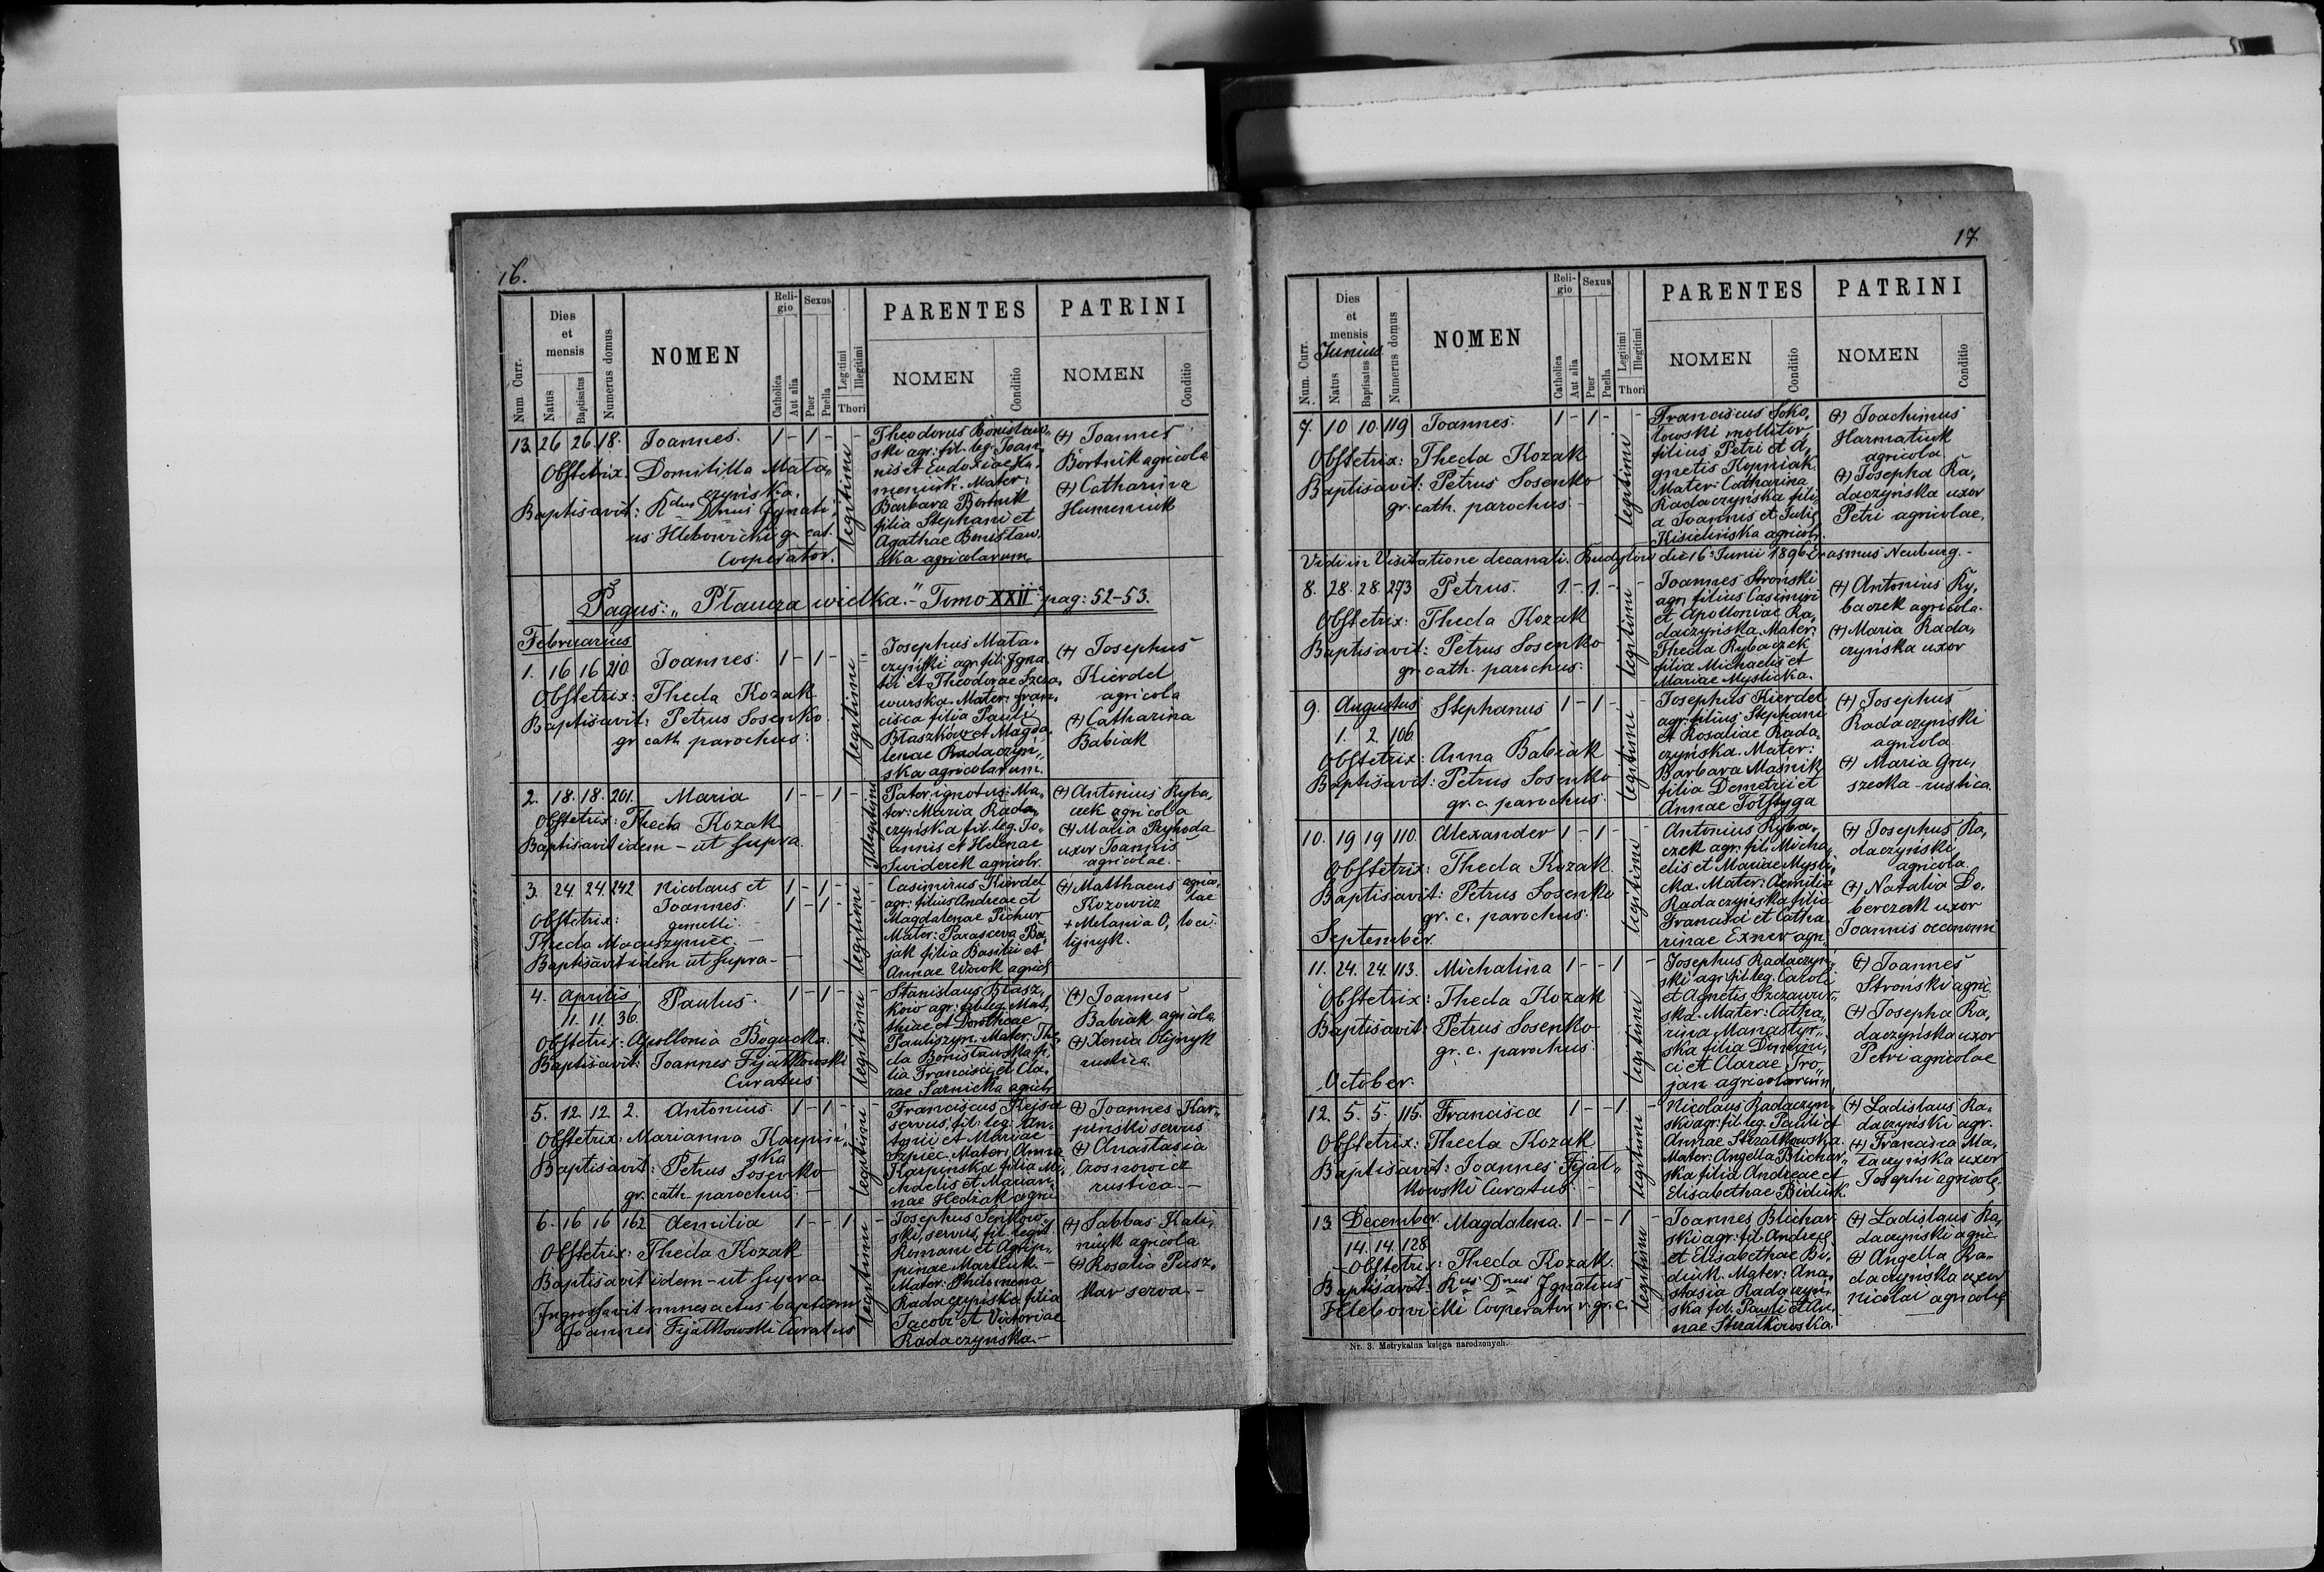 16.
Num Curr.
Dies et mensis
Natus
Baptisatus
Numerus domus
NOMEN
Religio
Catholica
Aut alia
Sexus
Puer
Puella
Legitimi
Illegitimi
Thori
PARENTES
NOMEN
Conditio
PATRINI
NOMEN
Conditio
13. 26 26. 18. Joannes. 1 - 1 - -
Obstetrix: Domitilla Mata„
czyńska.
Baptisavit: Rdus Dnus Ignati„
us Hlebowicki gr. cat.
Cooperator.
legitimi
Theodorus Bonisław„
ski agr: fil. leg. Joan„
nis et Eudoxiae Ka„
meniuk. Mater:
Barbara Bortnik
filia Stephani et
Agathae Bonisław„
ska agricolarum.
(+) Joannes
Bortnik agricola
(+) Catharina
Humeniuk
Pagus: „Płaucza wielka." - Tomo XXII pag: 52-53.
Februarius
1. 16 16 210 Joannes. 1 - 1 -
Obstetrix: Thecla Kozak
Baptisavit: Petrus Sosenko
gr. cath. parochus.
legitimi
Josephus Mata„
czyński agr. fil: Igna„
tii et Theodorae Szcza„
wurska. Mater: Fran„
cisca filia Pauli
Błaszków et Magda„
lenae Radaczyń„
ska agricolarum.
(+) Josephus
Kierdel
agricola
(+) Catharina
Babiak
2. 18. 18. 201. Maria 1 - - 1 -
Obstetrix: Thecla Kozak
Baptisavit idem - ut supra.
illegitimi
Pater: ignotus: Ma„
ter: Maria Rada„
czyńska fil. leg. Jo„
annis et Helenae
Swiderek agricolr.
(+) Antonius Ryba„
czek agricola
(+) Maria Pryhoda
uxor Joannis
agricolae. -
3. 24. 24. 242 Nicolaus et 1 - 1 - -
Joannes 1 - 1 - -
gemelli. -
Obstetrix:
Thecla Macuszyniec. -
Baptisavit idem ut supra -
legitimi
Casimirus Kierdel
agr: filius Andreae et
Magdalenae Pichur
Mater: Parasceva Ba„
jak filia Basilii et
Annae Wowk agricl
(+) Matthaeus agrico„
Kozowicz lae
+ Melania O„ loci.
lijnyk.
4. Aprilis Paulus. 1 - 1 - -
11. 11. 36.
Obstetrix: Apollonia Bogucka.
Baptisavit: Joannes Fijałkowski
Curatus
legitimi
Stanislaus Błasz„
ków agr: fil. leg. Mat„
thiae et Dorotheae
Pauliszyn. Mater: The„
cla Bonisławska fi„
lia Francisci et Cla„
rae Sarnicka agriclr
(+) Joannes
Babiak agricola.
(+) Xenia Olijnyk
rustica.
5. 12. 12. 2. Antonius. 1 - 1 - -
Obstetrix: Marianna Karpiń„
ska
Baptisavit: Petrus Sosenko
gr. cath. parochus. -
legitimi
Franciscus Rejsa
servus, fil: leg. An„
tonii et Mariae
Szpiec. Mater: Anna
Karpińska filia Mi„
chaelis et Marian„
nae Hedzak agric
(+) Joannes Kar„
piński servus
(+) Anastasia
Czosnowicz
rustica. -
6. 16 16 162 Aemilia 1 - - 1 -
Obstetrix: Thecla Kozak
Baptisavit idem - ut supra
Ingrossavit omnes actus baptism
Joannes Fijałkowski Curatus
legitimi
Josephus Senkow„
ski, servus, fil. legit
Romani et Agrip„
pinae Martiuk. -
Mater: Philomena
Radaczyńska filia
Jacobi et Victoriae
Radaczyńska. -
(+) Sabbas Kali„
niuk agricola
(+) Rosalia Pusz„
kar serva. -
17
Num. Curr.
Dies et mensis
Junius
Natus
Baptisatus
Numerus domus
NOMEN
Religio
Catholica
Aut alia
Sexus
Puer
Puella
Legitimi
Illegitimi
Thori
PARENTES
NOMEN
Conditio
PATRINI
NOMEN
Conditio
7. 10 10. 119 Joannes. 1 - 1 - -
Obstetrix: Thecla Kozak
Baptisavit: Petrus Sosenko
gr. cath. parochus. -
legitimi
Franciscus Soko„
łowski mollitor
filius Petri et A„
gnetis Kopniak.
Mater: Catharina
Radaczyńska fili„
a Joannis et Julię
Kisielińska agricolr.
(+) Joachimus
Harmatiuk
agricola
(+) Josepha Ra„
daczyńska uxor
Petri agricolae.
Vidi in Visitatione decanali. Budyłów die 16. Junii 1896 Erasmus Neuburg. -
8. 28. 28. 273 Petrus. 1. - 1. - -
Obstetrix: Thecla Kozak
Baptisavit: Petrus Sosenko
gr. cath. parochus.
legitimi
Joannes Stroński
agr. filius Casimiri
et Apolloniae Ra„
daczyńska. Mater:
Thecla Rybaczek
filia Michaelis et
Mariae Myslicka.
(+) Antonius Ry„
baczek agricola.
(+) Maria Rada„
czyńska uxor
9. Augustus Stephanus 1 - 1 -
1. 2. 106
Obstetrix: Anna Babiak
Baptisavit: Petrus Sosenko
gr. c. parochus.
legitimi
Josephus Kierdel
agr. filius Stephani
et Rosaliae Rada„
czyńska. Mater:
Barbara Maśnik
filia Demetrii et
Annae Tołstyga
(+) Josephus
Radaczyński
agricola
(+) Maria Gru„
szecka rustica.
10. 19 19 110. Alexander 1 - 1 -
Obstetrix: Thecla Kozak.
Baptisavit: Petrus Sosenko
gr. c. parochus.
legitimi
Antonius Ryba„
czek agr: fil. Micha„
elis et Mariae Mysli„
cka. Mater: Aemilia
Radaczyńska filia
Francisci et Catha„
rinae Exner agri.
(+) Josephus Ra„
daczyński
agricola
(+) Natalia Do„
berczak uxor
Joannis oeconomi
September.
11. 24. 24. 113. Michalina 1 - - 1 -
Obstetrix: Thecla Kozak
Baptisavit: Petrus Sosenko
gr. c. parochus.
legitimi
Josephus Radaczyń„
ski agr. fil. leg. Caroli
et Agnetis Szczawur„
ska. Mater: Catha„
rina Manastyr„
ska filia Domini„
ci et Clarae Tro„
jan agricolarum.
(+) Joannes
Stroński agric.
(+) Josepha Ra„
daczyńska uxor
Petri agricolae
October.
12. 5. 5. 115. Francisca 1 - - 1. -
Obstetrix: Thecla Kozak
Baptisavit: Joannes Fijał„
kowski Curatus. -
legitimi
Nicolaus Radaczyń„
ski agr: fil. leg. Pauli et
Annae Strzałkowska.
Mater: Angella Blichar„
ska filia Andreae et
Elisabethae Bidiuk.
(+) Ladislaus Ra„
daczyński agr.
(+) Francisca Ma„
taczyńska uxor
Josephi agricolę
13. December. Magdalena. 1 - - 1 -
14. 14. 128
Obstetrix: Thecla Kozak.
Baptisavit: Rus Dnus Ignatius
Hlebowicki Cooperator r. gr. c.
legitimi
Joannes Blichar„
ski agr. fil. Andreę
et Elisabethae Bi„
diuk. Mater: Ana„
stasia Radaczyń„
ska fil. Pauli et An„
nae Strzałkowska.
(+) Ladislaus Ra„
daczyński agric.
(+) Angella Ra„
daczyńska uxor
Nicolai agricolę
Nr. 3. Metrykalna księga narodzonych.